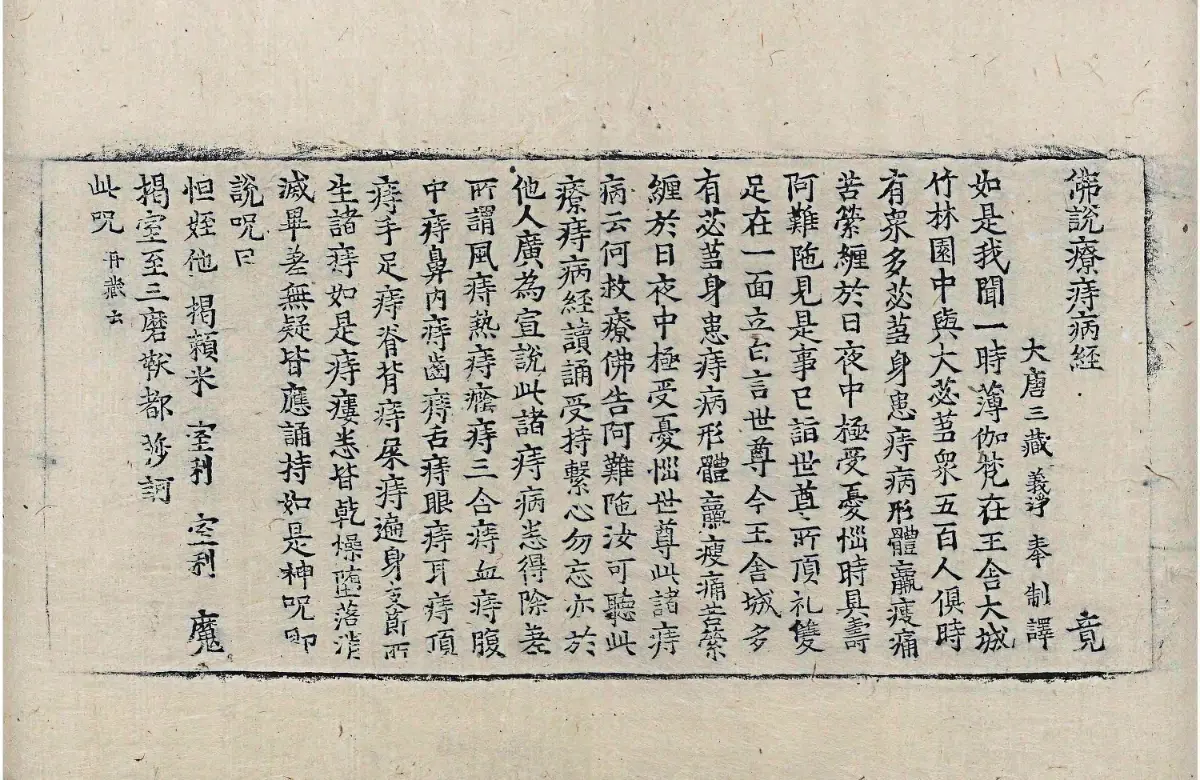 佛說療痔病經 竟
大唐三藏義淨奉制譯
如是我聞一時薄伽梵在王舍大城
竹林園中與大苾芻眾五百人俱時
有眾多苾芻身患痔病形體羸瘦痛
苦縈纏於日夜中極受憂惱時具壽
阿難陁見是事已詣世尊所頂礼雙
足在一面立白言世尊今王舍城多
有苾芻身患痔病形體羸瘦痛苦縈
纏於日夜中極受憂惱世尊此諸痔
病云何救療佛告阿難陁汝可聽此
療痔病經讀誦受持繫心勿忘亦於
他人廣為宣說此諸痔病悉得除差
所謂風痔熱痔癊痔三合痔血痔腹
中痔鼻內痔齒痔舌痔眼痔耳痔頂
痔手足痔脊背痔屎痔遍身支節所
生諸痔如是痔瘻悉皆乾燥墮落消
滅畢差無疑皆應誦持如是神呪即
說呪曰
怛姪他 揭賴米 室利 室利 魔
揭室至三磨韈都 莎訶
此呪 丹藏云